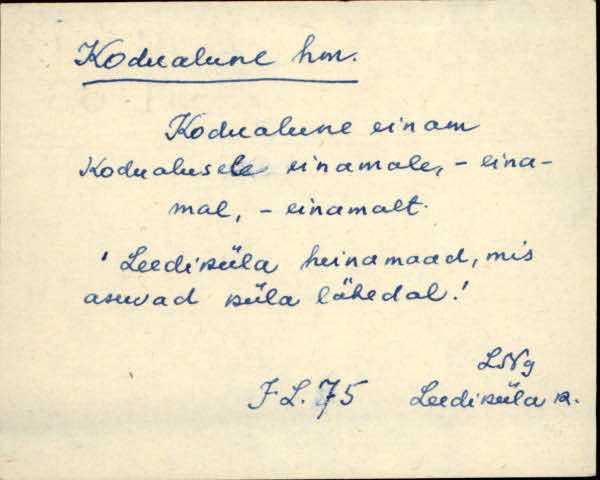 Kodualune hm.
Kodualune einam
Kodualusele einamale, - eina-
mal, - einamalt.
'Leediküla heinamaad, mis
asuvad küla lähedal.'
LNg
F L. 75 Leediküla k.